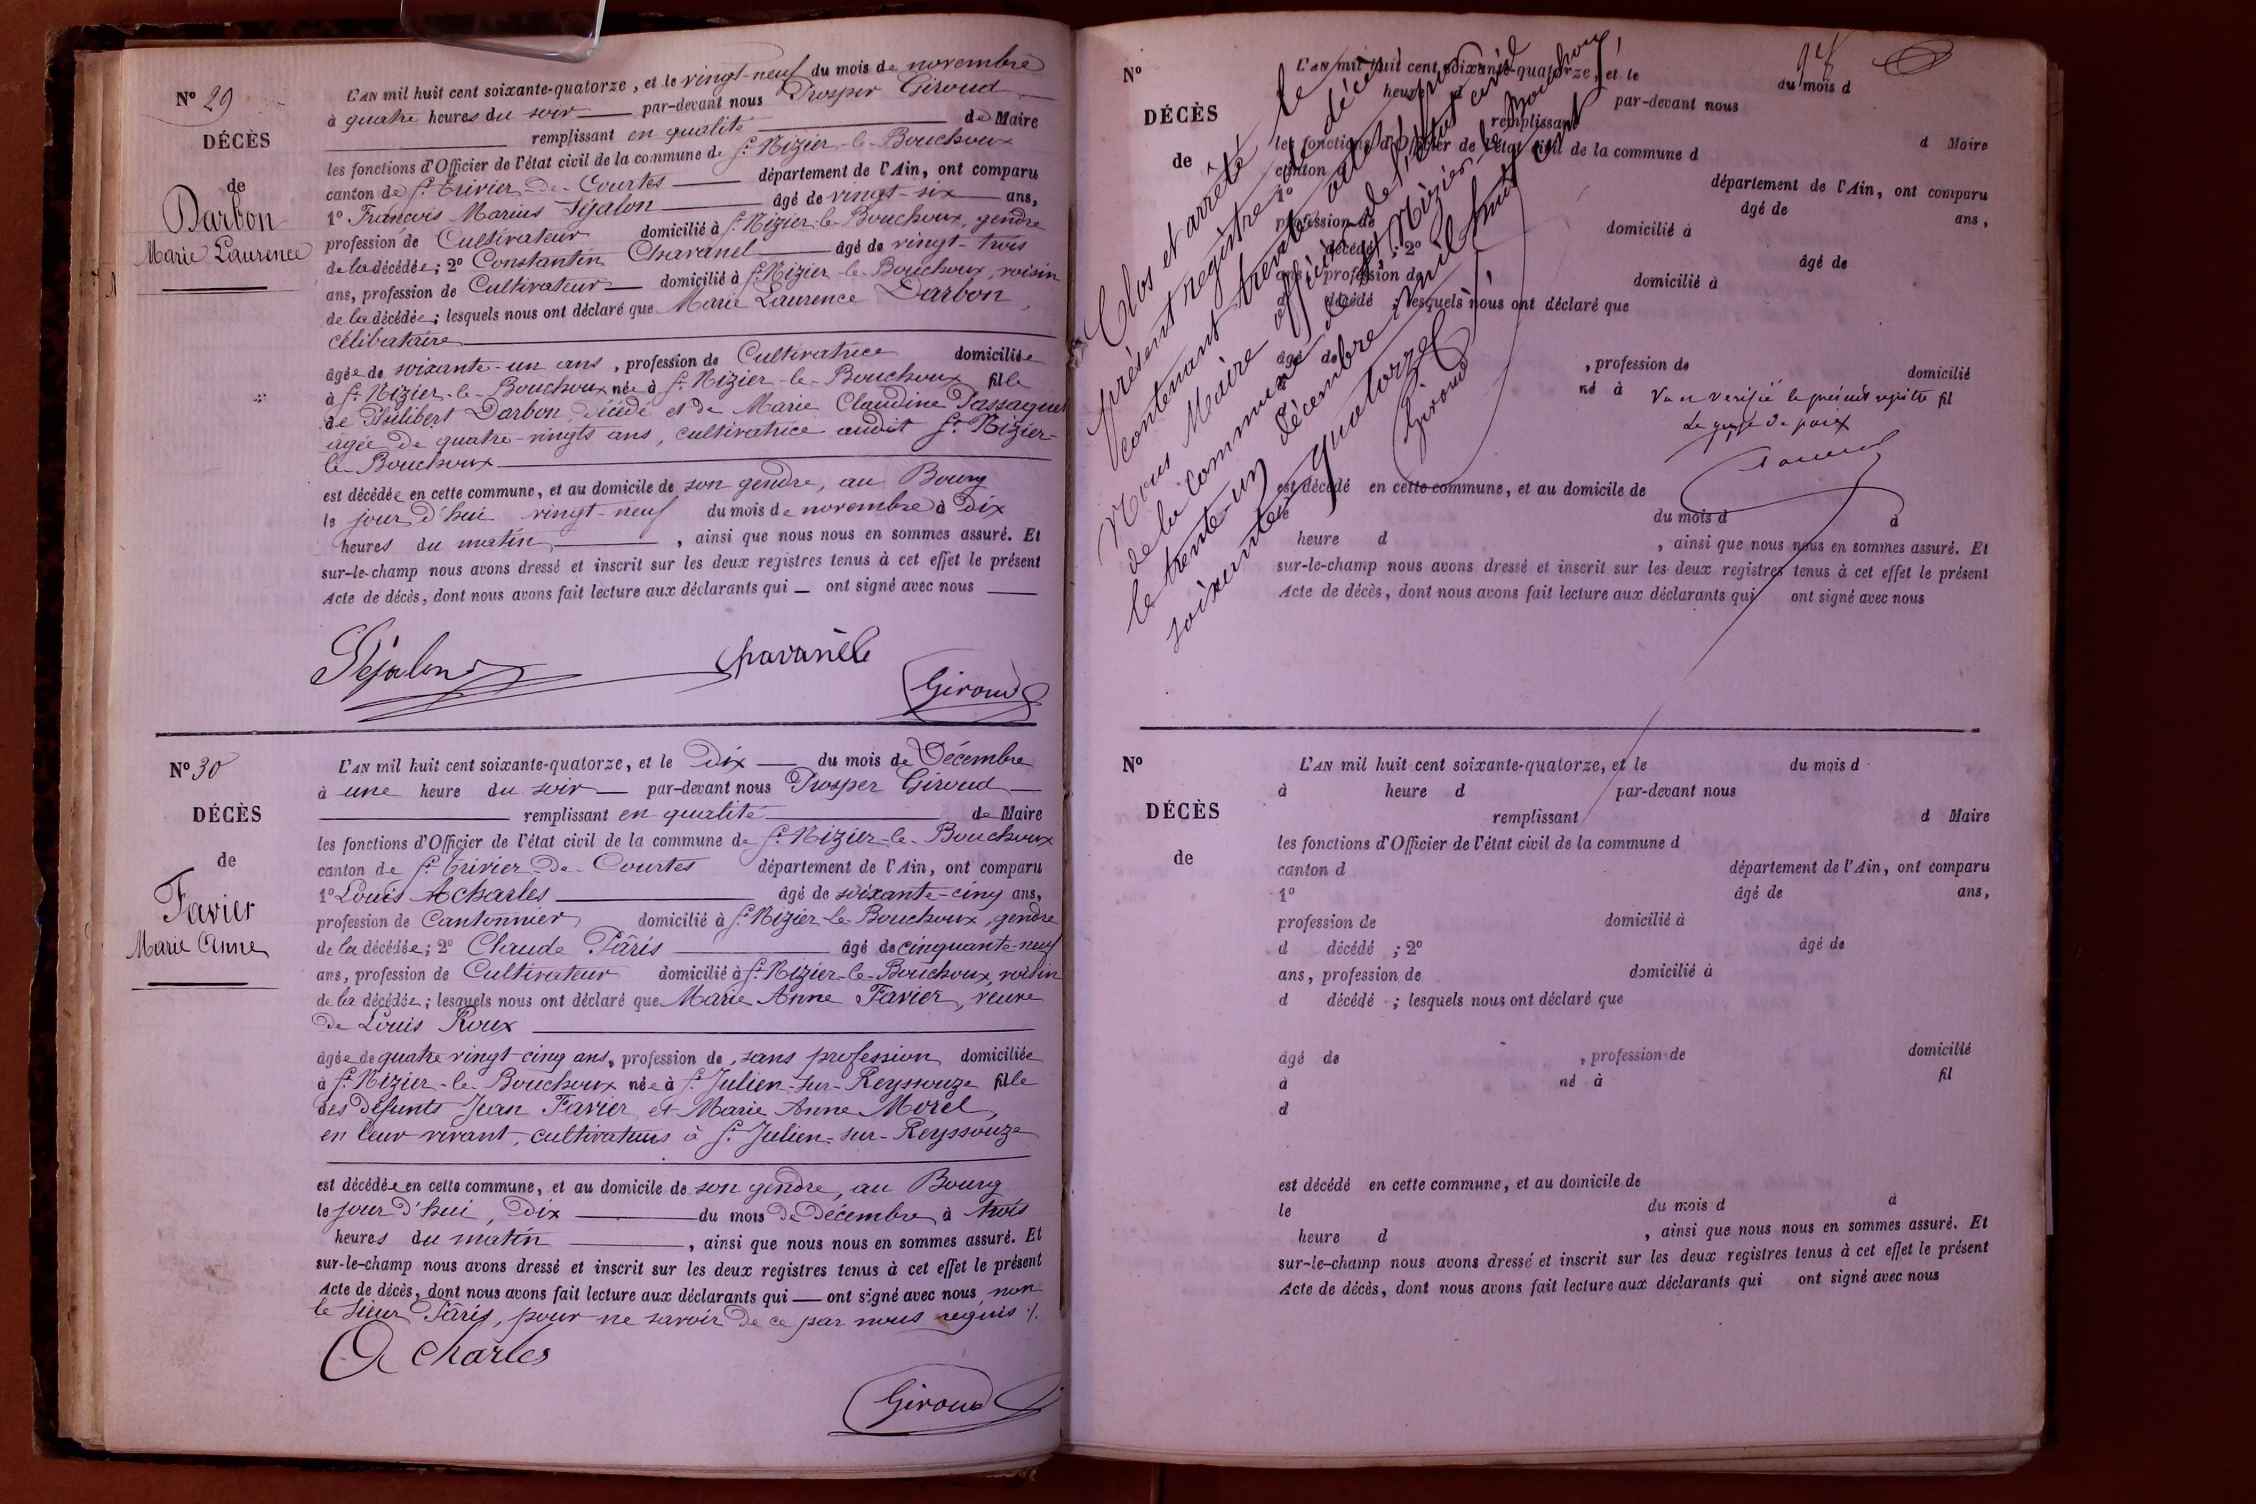 N° 29
DÉCÈS
de
Darbon
Marie Laurence
L'AN mil huit cent soixante-quatorze, et le vingt-neuf du mois de novembre
à quatre heures du soir par-devant nous Prosper Giroud
remplissant en qualité de Maire
les fonctions d'Officier de l'état civil de la commune de St Nizier-le-Bouchoux
canton de St Trivier-de-Courtes département de l'Ain, ont comparu
1° François Marius Séjalon âgé de vingt-six ans,
profession de Cultivateur domicilié à St Nizier-le-Bouchoux, gendre
de la décédée; 2° Constantin Chavanel âgé de vingt-trois
ans, profession de Cultivateur domicilié à St Nizier-le-Bouchoux, voisin
de la décédée; lesquels nous ont déclaré que Marie Laurence Darbon,
célibataire
âgée de soixante-un ans, profession de Cultivatrice domiciliée
à St Nizier-le-Bouchoux née à St Nizier-le-Bouchoux fille
de Philibert Darbon décédé et de Marie Claudine
âgée de quatre-vingts ans, cultivatrice audit St Nizier-
le-Bouchoux
est décédée en cette commune, et au domicile de son gendre, au Bourg
le jour d'hui vingt-neuf du mois de novembre à Dix
heures du matin, ainsi que nous nous en sommes assuré. Et
sur-le-champ nous avons dressé et inscrit sur les deux registres tenus à cet effet le présent
Acte de décès, dont nous avons fait lecture aux déclarants qui ont signé avec nous
Séjalon Chavanel
Giroud
N° 30
DÉCÈS
de
Favier
Marie Anne
L'AN mil huit cent soixante-quatorze, et le Dix du mois de Décembre
à une heure du soir par-devant nous Prosper Giroud
remplissant en qualité de Maire
les fonctions d'Officier de l'état civil de la commune de St Nizier-le-Bouchoux
canton de St Trivier-de-Courtes département de l'Ain, ont comparu
1° Louis Acharles âgé de soixante-cinq ans,
profession de Cantonnier domicilié à St Nizier-le-Bouchoux, gendre
de la décédée; 2° Claude Pâris âgé de cinquante-neuf
ans, profession de Cultivateur domicilié à St Nizier-le-Bouchoux, voisin
de la décédée; lesquels nous ont déclaré que Marie Anne Favier, veuve
de Louis Roux
âgée de quatre vingt-cinq ans, profession de sans profession domiciliée
à St Nizier-le-Bouchoux née à St Julien-sur-Reyssouze fille
des défunts Jean Favier et Marie Anne Morel,
en leur vivant, cultivateurs à St Julien-sur-Reyssouze
est décédée en cette commune, et au domicile de son gendre, au Bourg
le jour d'hui, Dix du mois de Décembre à trois
heures du matin, ainsi que nous nous en sommes assuré. Et
sur-le-champ nous avons dressé et inscrit sur les deux registres tenus à cet effet le présent
Acte de décès, dont nous avons fait lecture aux déclarants qui ont signé avec nous, non
le sieur Pâris, pour ne savoir de ce par nous requis ./.
Acharles
Giroud
N°
DÉCÈS
de
L'AN mil huit cent soixante-quatorze, et le du mois d
heure d par-devant nous
remplissant d Maire
les fonctions d'Officier de l'état civil de la commune d
canton département de l'Ain, ont comparu
1° âgé de ans,
profession de domicilié à
décédé ; 2° âgé de
ans, profession de domicilié à
d décédé ; lesquels nous ont déclaré que
âgé de , profession de domicilié
né à fil
est décédé en cette commune, et au domicile de
le du mois d à
heure d , ainsi que nous nous en sommes assuré. Et
sur-le-champ nous avons dressé et inscrit sur les deux registres tenus à cet effet le présent
Acte de décès, dont nous avons fait lecture aux déclarants qui ont signé avec nous
Clos et arrêté le
présent registre de décès
contenant trente actes, par
Nous Maire officier de l'état civil
de la commune de St Nizier-le-Bouchoux,
le trente-un décembre mil huit cent
soixante-quatorze,
Giroud
Vu et vérifié le présent registre
Le juge de paix
N°
DÉCÈS
de
L'AN mil huit cent soixante-quatorze, et le du mois d
à heure d par-devant nous
remplissant d Maire
les fonctions d'Officier de l'état civil de la commune d
canton d département de l'Ain, ont comparu
1° âgé de ans,
profession de domicilié à
d décédé ; 2° âgé de
ans, profession de domicilié à
d décédé ; lesquels nous ont déclaré que
âgé de , profession de domicilié
à né à fil
d
est décédé en cette commune, et au domicile de
le du mois d à
heure d , ainsi que nous nous en sommes assuré. Et
sur-le-champ nous avons dressé et inscrit sur les deux registres tenus à cet effet le présent
Acte de décès, dont nous avons fait lecture aux déclarants qui ont signé avec nous